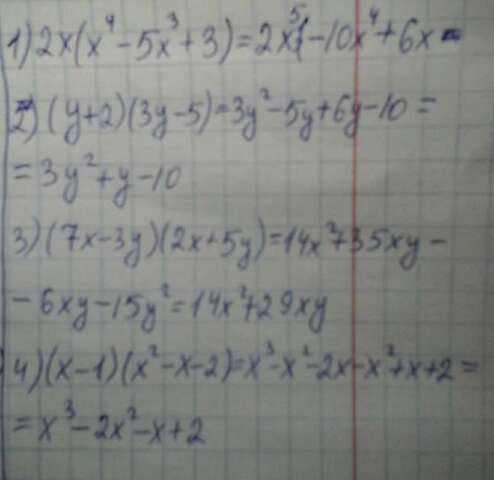 1) 2x(x⁴-5x³+3)=2x⁵-10x⁴+6x
2) (y+2)(3y-5)=3y²-5y+6y-10=
=3y²+y-10
3) (7x-3y)(2x+5y)=14x²+35xy-
-6xy-15y²=14x²+29xy
4) (x-1)(x²-x-2)=x³-x²-2x-x²+x+2=
=x³-2x²-x+2